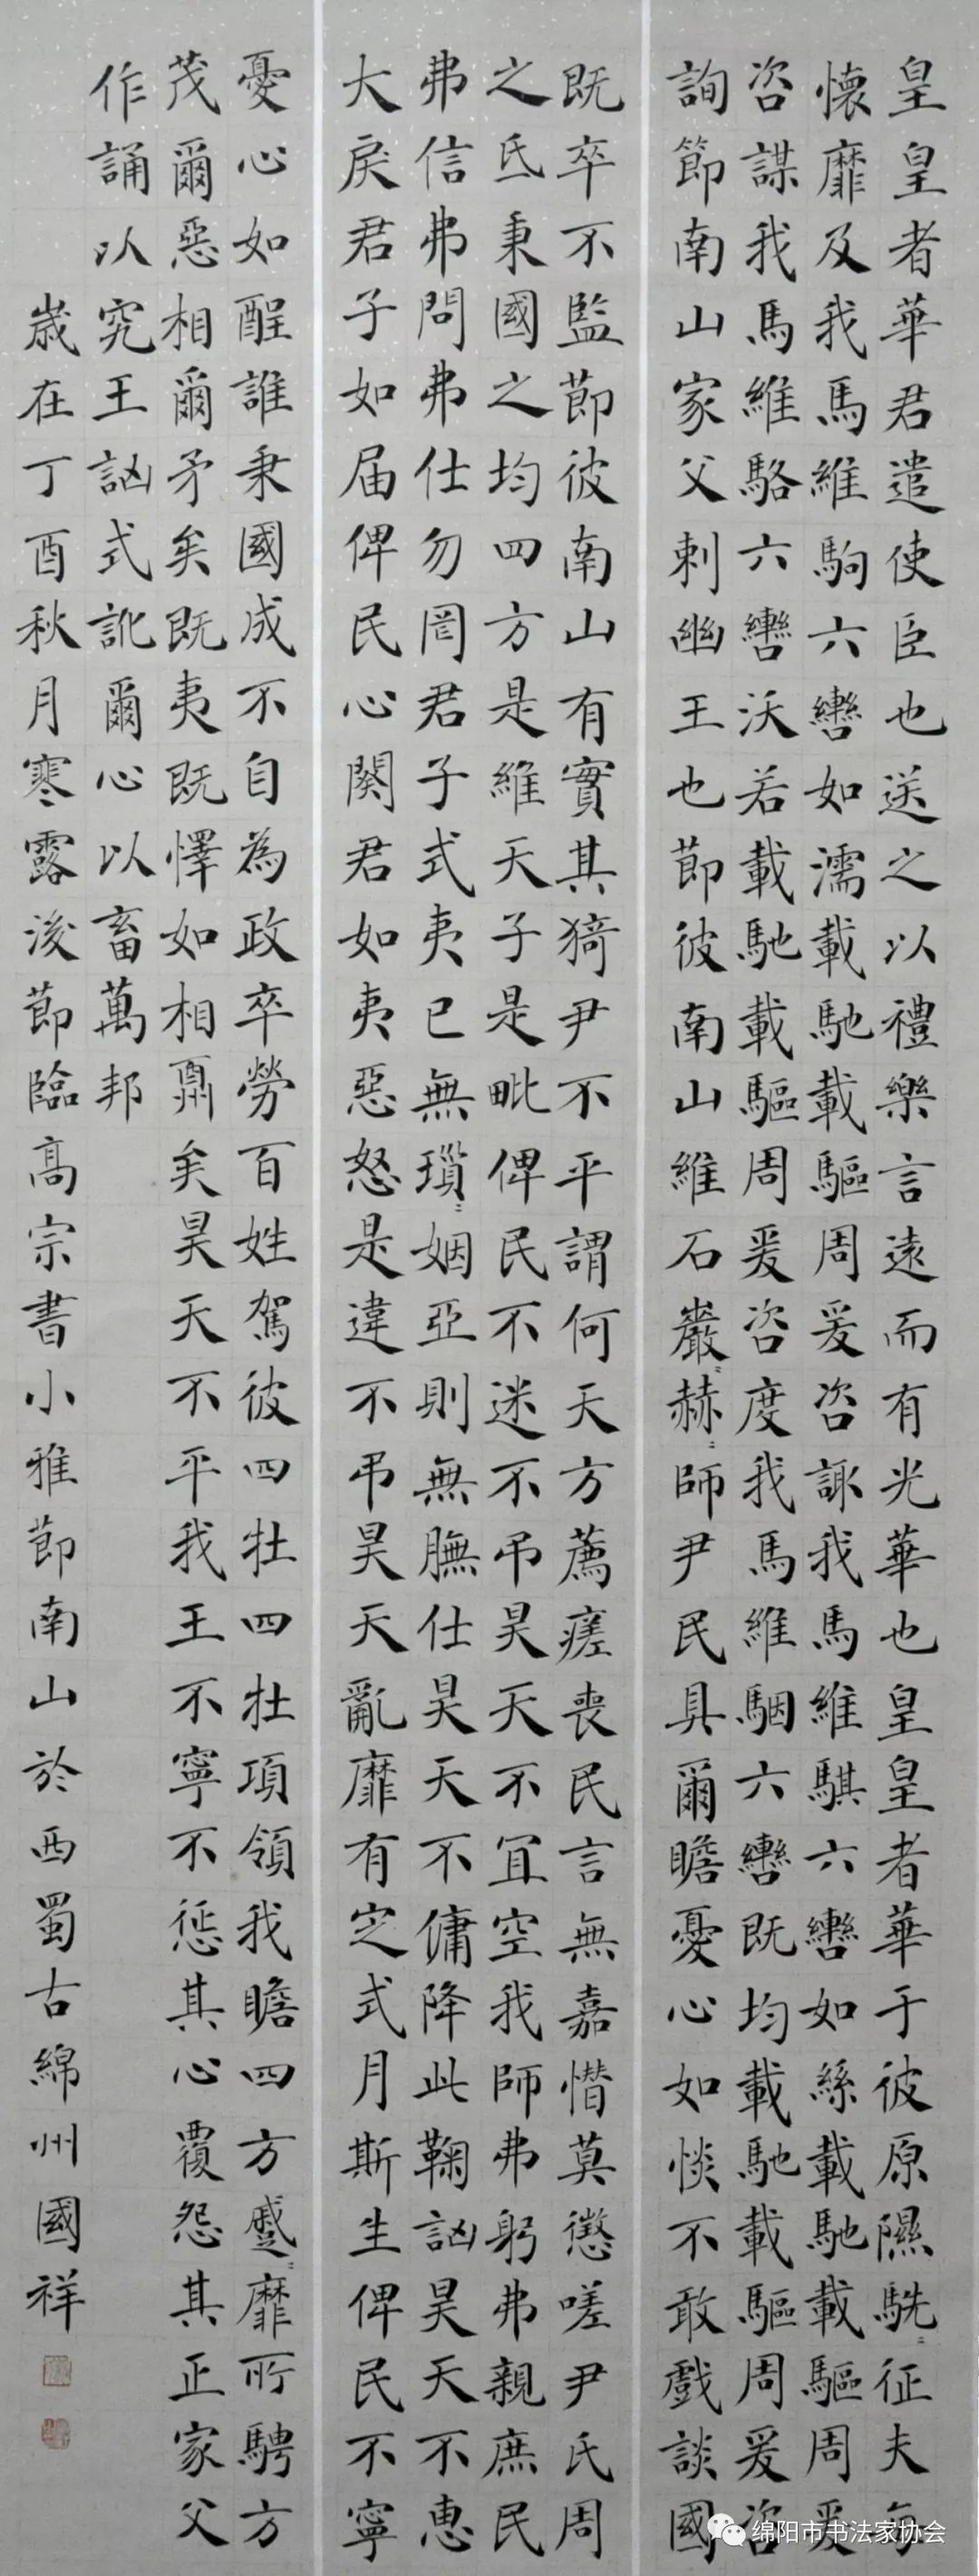 皇皇者華君遣使臣也送之以禮樂言遠而有光華也皇皇者華于彼原隰駪=征夫每
懷靡及我馬維駒六轡如濡載馳載驅周爰咨諏我馬維騏六轡如絲載馳載驅周爰
咨謀我馬維駱六轡沃若載馳載驅周爰咨度我馬維駰六轡既均載馳載驅周爰咨
詢節南山家父刺幽王也節彼南山維石巖=赫=師尹民具爾瞻憂心如惔不敢戲談國
既卒不監節彼南山有實其猗尹不平謂何天方薦瘥喪民言無嘉憯莫懲嗟尹氏周
之氐秉國之均四方是維天子是毗俾民不迷不弔昊天不宜空我師弗躬弗親庶民
弗信弗問弗仕勿罔君子式夷已無瑣=姻亞則無膴仕昊天不傭降此鞠訩昊天不惠
大戾君子如届俾民心闋君如夷惡怒是違不弔昊天亂靡有定式月斯生俾民不寧
憂心如酲誰秉國成不自為政卒勞百姓駕彼四牡四牡項領我瞻四方蹙=靡所騁方
茂爾惡相爾矛矣既夷既懌如相矣昊天不平我王不寧不惩其心覆怨其正家父
作誦以究王訩式訛爾心以畜萬邦
歲在丁酉秋月寒露後節臨髙宗書小雅節南山於西蜀古綿州國祥
绵阳市书法家协会